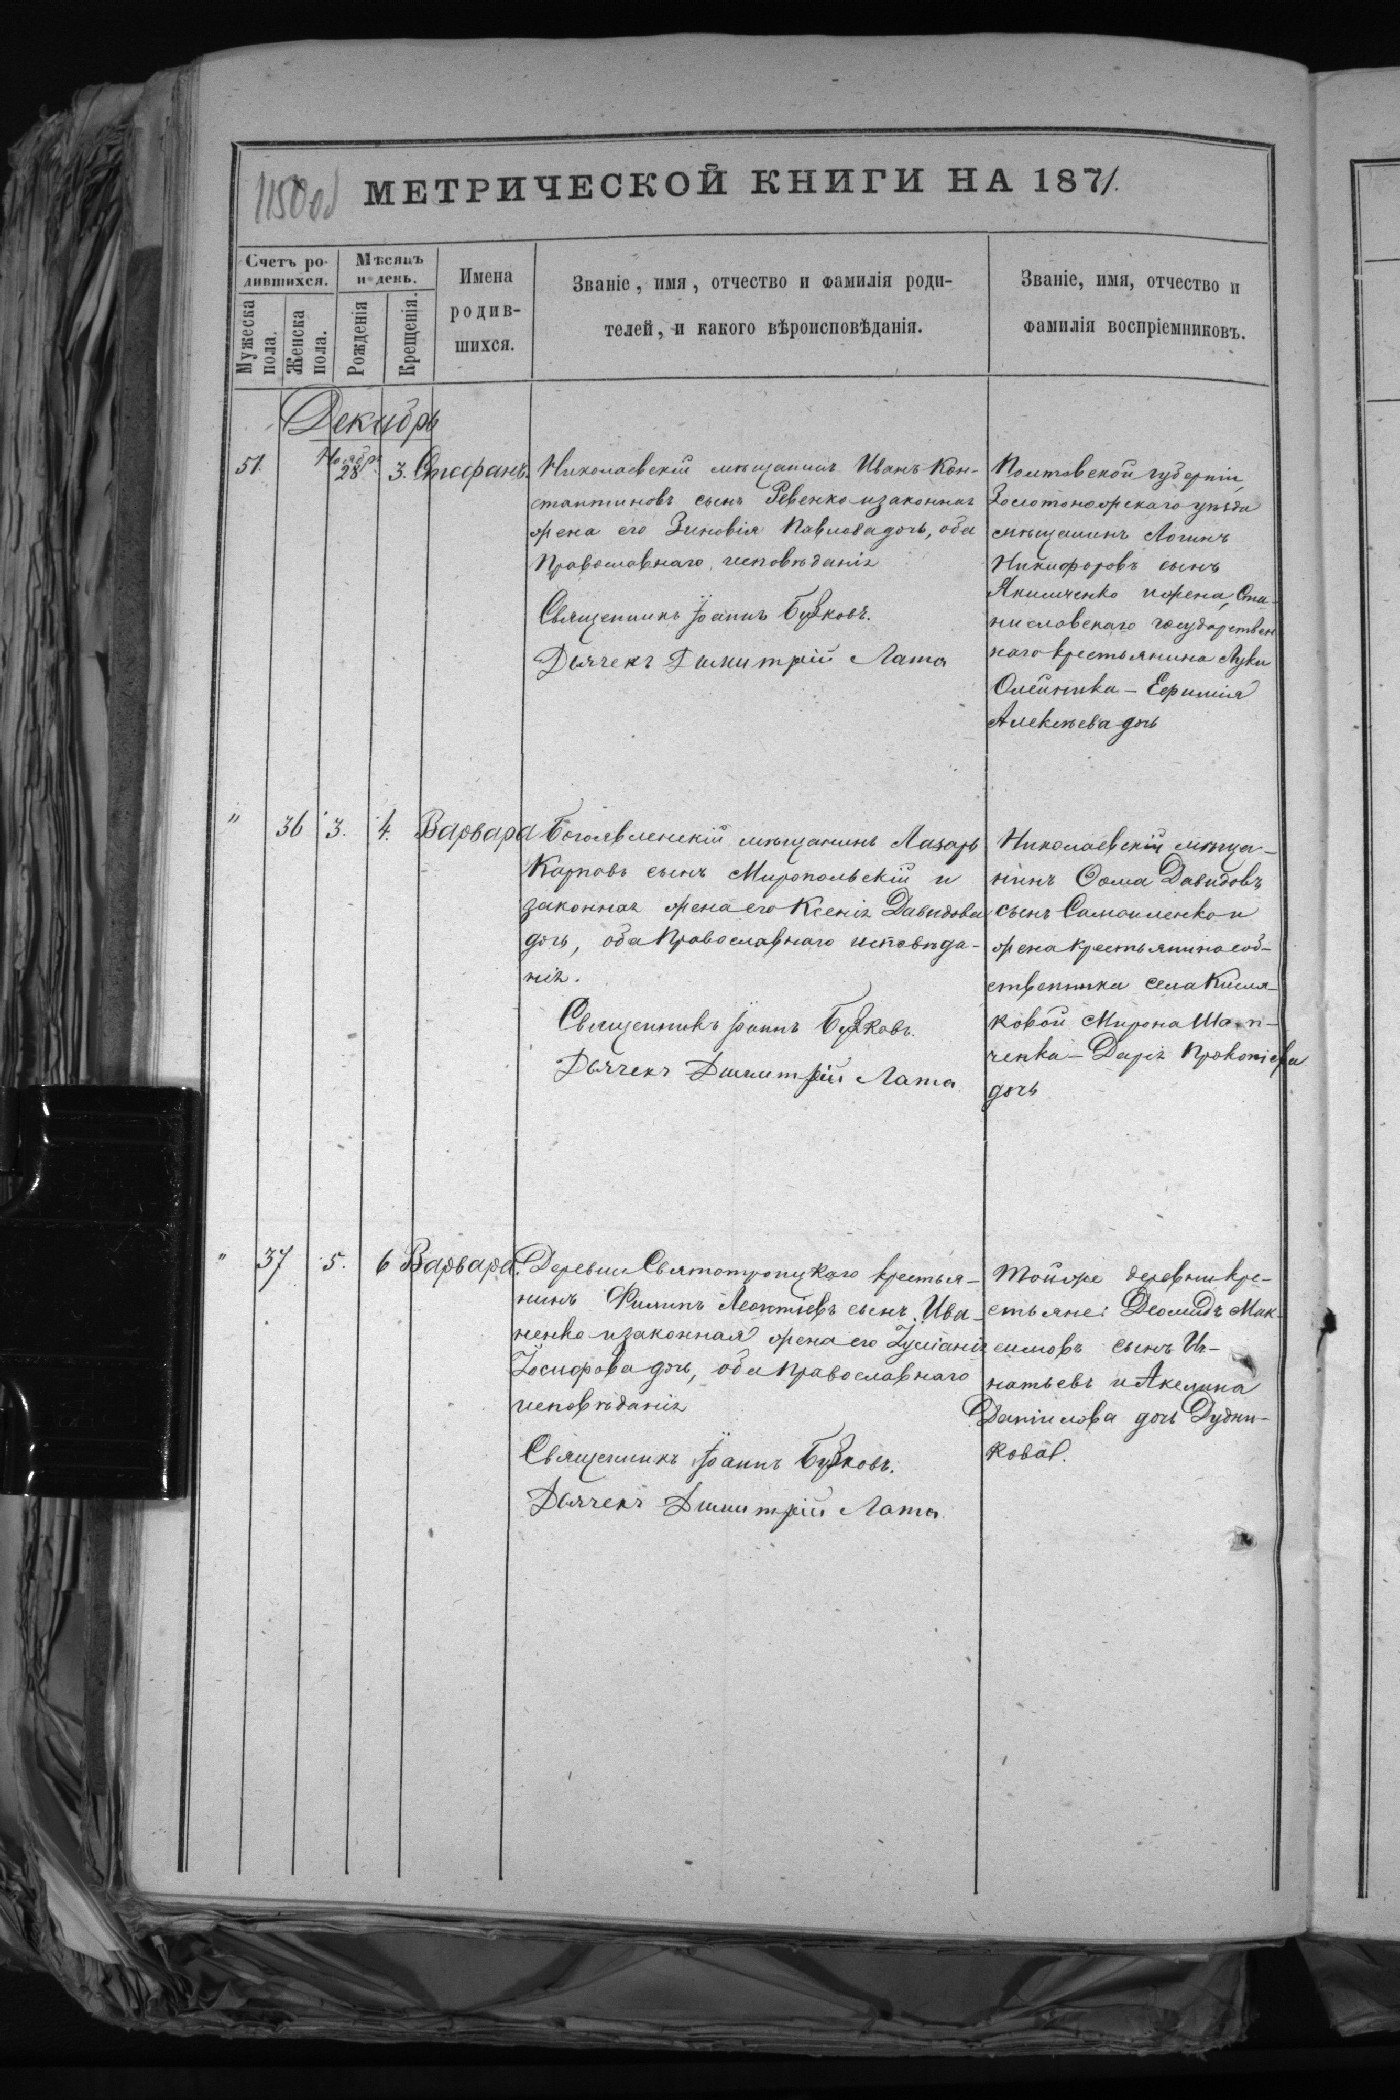 1150об
МЕТРИЧЕСКОЙ КНИГИ НА 1871.
Счетъ ро-
дившихся.
Мужеска пола.
Женска пола.
Мѣсяцъ
и день.
Рожденія
Крещенія.
Имена
родив-
шихся.
Званіе, имя, отчество и фамилія роди-
телей, и какого вѣроисповѣданія.
Званіе, имя, отчество и
фамилія воспріемниковъ.
Декабрь
51.
Ноября
28.
3.
Стефанъ.
Николаевскій мѣщанинъ Иванъ Кон-
стантиновъ сынъ Ревенко и законная
жена его Зиновія Павлова дочь, оба
Православнаго исповѣданія
Священникъ Іоаннъ Бужковъ.
Дьячекъ Димитрій Лата
Полтовской губерніи,
Золотоножскаго уѣзда
мѣщанинъ Логинъ
Никифоровъ сынъ
Якимченко и жена Ста-
ниславскаго государствен
наго крестьянина Луки
Олейника - Ефимія
Алексѣева дочь
"
36
3.
4.
Варвара
Богоявленскій мѣщанинъ Лазарь
Карповъ сынъ Миропольскій и
законная жена его Ксенія Давидова
дочь, оба Православнаго исповѣда-
нія.
Священникъ Іоаннъ Бужковъ.
Дьячекъ Димитрій Лата
Николаевскій мѣща-
нинъ Ѳома Давидовъ
сынъ Самоиленко и
жена крестьянина соб-
ственника села Кисля-
ковой Мирона
ченка - Дарія Прокопіева
дочь
"
37
5.
6
Варвара.
Деревни Святотроицкаго крестья-
нинъ Филипъ Леонтіевъ сынъ Ива-
ненко и законная жена его Іуліанія
Іосифова дочь, оба православнаго
исповѣданія
Священникъ Іоаннъ Бужковъ.
Дьячекъ Димитрій Лата
Той же деревни кре-
стьяне: Деомидъ Мак-
симовъ сынъ Иг-
натьевъ и Акелина
Даніилова дочь Дудни-
кова.